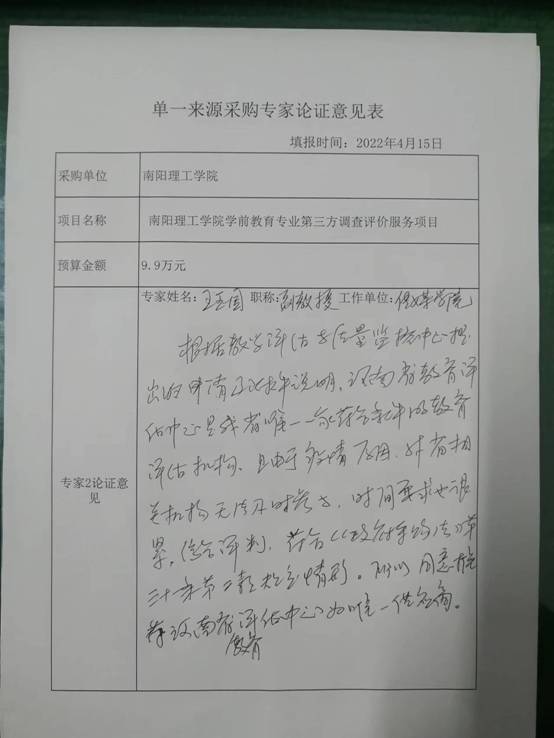 单一来源采购专家论证意见表
填报时间：2022年4月15日
采购单位 南阳理工学院
项目名称 南阳理工学院学前教育专业第三方调查评价服务项目
预算金额 9.9万元
专家姓名：王玉国 职称：副教授 工作单位：传媒学院
专家2论证意见
根据教学评估与质量监控中心提
出的申请及北择说明，河南省教育评
估中心是我省唯一一家符合条件的教育
评估机构，且由于疫情原因，外省相
关机构无法及时参与，时间要求也很
紧。综合评判，符合《政府采购法》第
三十一条第二款规定情形。所以同意推
荐河南省教育评估中心为唯一供应商。